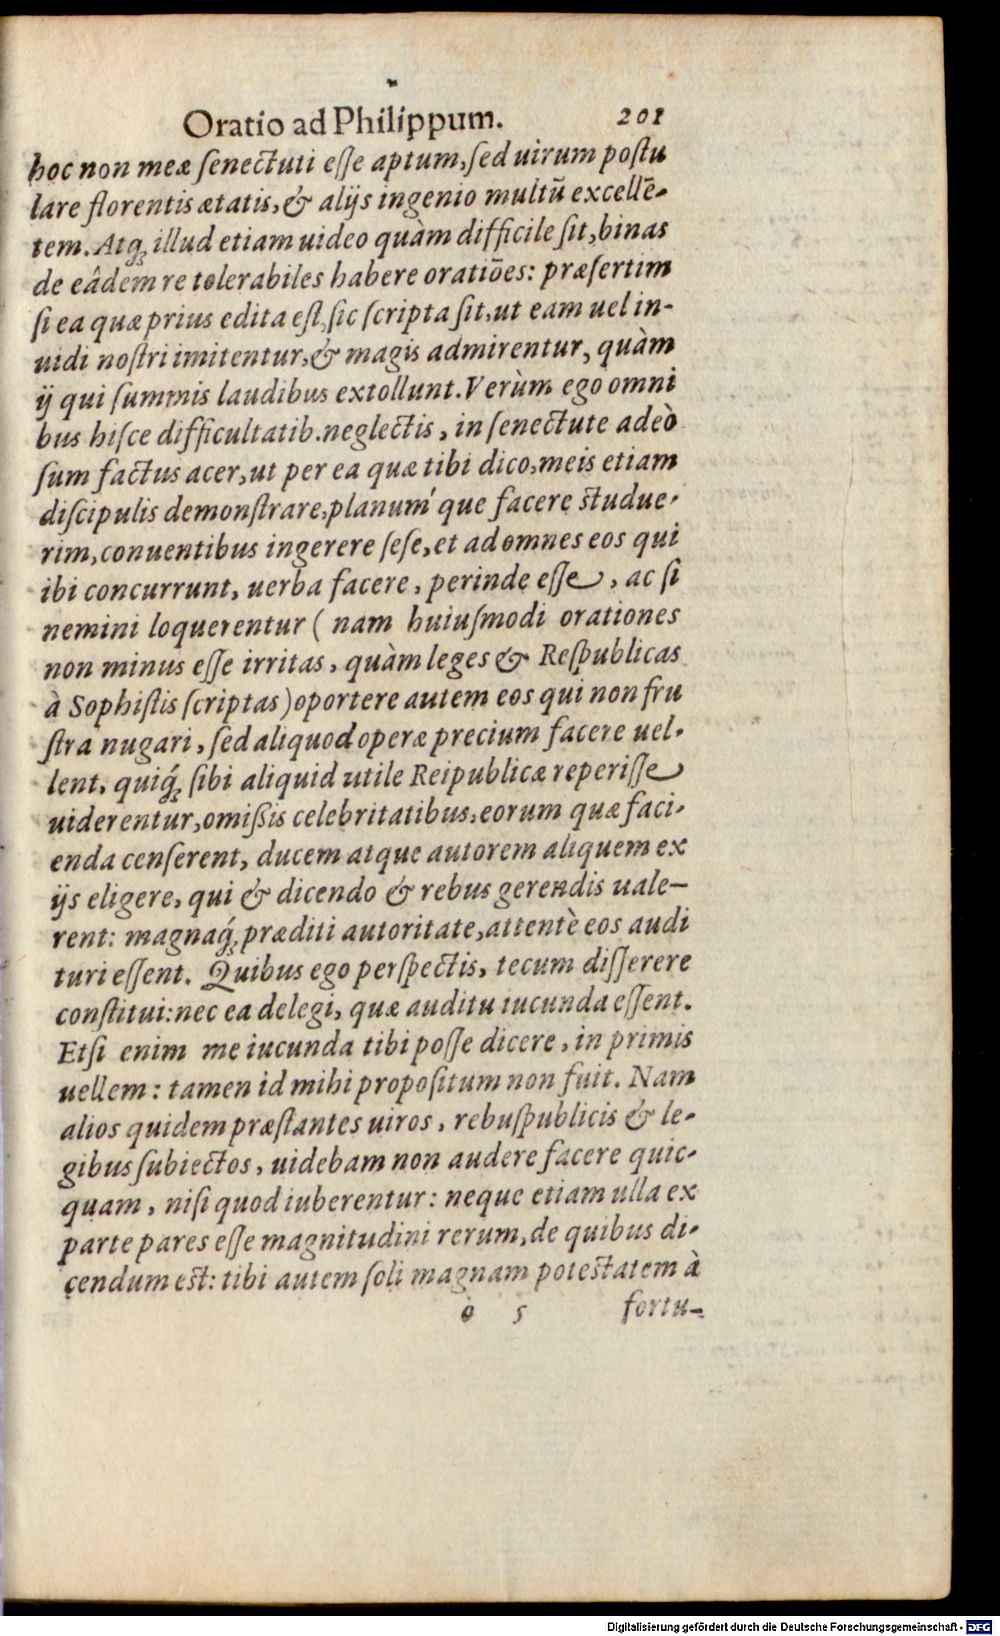 Oratio ad Philippum. 201
hoc non meæ ſenectuti eſſe aptum, ſed uirum poſtu
lare florentis ætatis, & alijs ingenio multū excellē-
tem. Atqꝫ illud etiam uideo quàm difficile ſit, binas
de eâdem re tolerabiles habere oratiōes: præſertim
ſi ea quæ prius edita eſt, ſic ſcripta ſit, ut eam uel in-
uidi noſtri imitentur, & magis admirentur, quàm
ij qui ſummis laudibus extollunt. Verùm ego omni
bus hiſce difficultatib. neglectis, in ſenectute adeò
ſum factus acer, ut per ea quæ tibi dico, meis etiam
diſcipulis demonſtrare, planuḿ que facere ſtudue-
rim, conuentibus ingerere ſeſe, et ad omnes eos qui
ibi concurrunt, uerba facere, perinde eſſe, ac ſi
nemini loquerentur ( nam huiuſmodi orationes
non minus eſſe irritas, quàm leges & Reſpublicas
à Sophiſtis ſcriptas) oportere autem eos qui non fru
ſtra nugari, ſed aliquod operæ precium facere uel-
lent, quiq́ꝫ ſibi aliquid utile Reipublicæ reperiſſe
uiderentur, omiſsis celebritatibus, eorum quæ faci-
enda cenſerent, ducem atque autorem aliquem ex
ijs eligere, qui & dicendo & rebus gerendis uale-
rent: magnaq́ꝫ præditi autoritate, attentè eos audi
turi eſſent. Quibus ego perſpectis, tecum diſſerere
conſtitui: nec ea delegi, quæ auditu iucunda eſſent.
Etſi enim me iucunda tibi poſſe dicere, in primis
uellem: tamen id mihi propoſitum non fuit. Nam
alios quidem præſtantes uiros, rebuſpublicis & le-
gibus ſubiectos, uidebam non audere facere quic-
quam, niſi quod iuberentur: neque etiam ulla ex
parte pares eſſe magnitudini rerum, de quibus di-
cendum eſt: tibi autem ſoli magnam poteſtatem à
o 5 fortu-
Digitalisierung gefördert durch die Deutsche Forschungsgemeinschaft - DFG